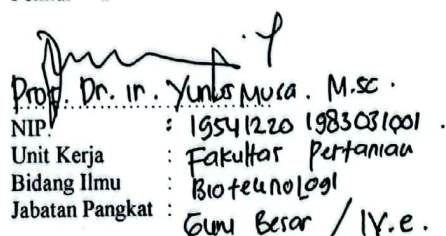 Prof. Dr. ir. Yunus Musa. M.sc.
NIP. : 19541220 198303 1001.
Unit Kerja : Fakultas Pertanian
Bidang Ilmu : Bioteknologi
Jabatan Pangkat : Guru Besar / IV.e.